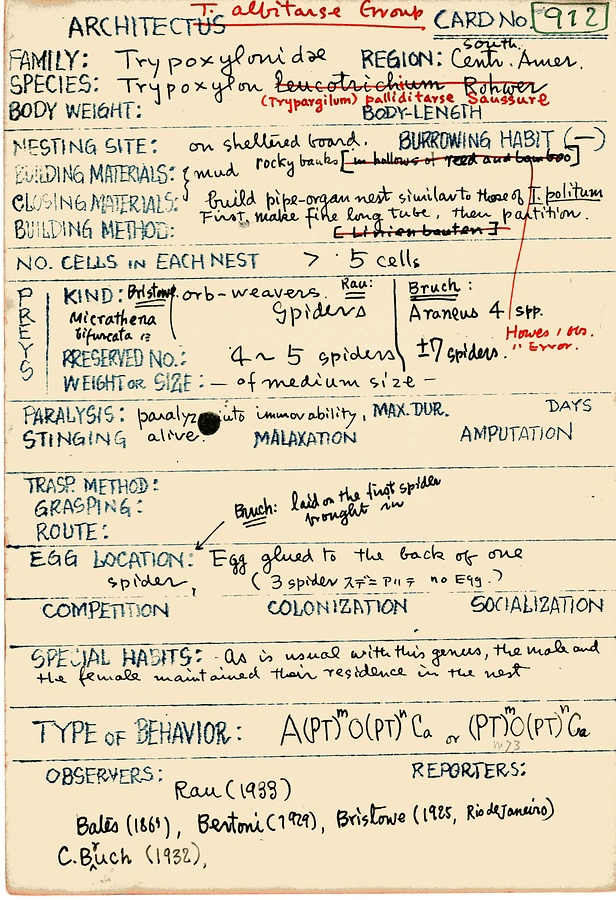 T. albitarse Group
ARCHITECTUS CARD No. 912
FAMILY: Trypoxylonidae REGION: South. Centr. Amer.
SPECIES: Trypoxylon Leucotrichium Rohwer
(Trypargilum) palliditarse Saussure
BODY WEIGHT: BODY-LENGTH
NESTING SITE: on sheltered board. BURROWING HABIT (—)
rocky banks [in hollows of reed and bamboo]
BUILDING MATERIALS: } mud
CLOSING MATERIALS: build pipe-organ nest similar to those of T. politum
BUILDING METHOD: First, make fine long tube, then partition.
[Linienbauten]
NO. CELLS IN EACH NEST > 5 cells
PREYS
KIND: Bristowe. orb-weavers. Rau: Spiders
Micrathena bifurcata
Bruch:
Araneus 4 spp.
±7 spiders.
Howes' obs.
" Error.
PRESERVED No.: 4~5 spiders
WEIGHT OR SIZE: — of medium size —
PARALYSIS: paralyz into immovability, MAX. DUR. DAYS
STINGING alive. MALAXATION AMPUTATION
TRASP. METHOD:
GRASPING:
Bruch: laid on the first spider
brought in
ROUTE:
EGG LOCATION: Egg glued to the back of one
spider, (3 spider ステニアリテ no Egg.)
COMPETITION COLONIZATION SOCIALIZATION
SPECIAL HABITS: As is usual with this genus, the male and
the female maintained their residence in the nest
TYPE OF BEHAVIOR: A(PT)ᵐO(PT)ⁿCa or (PT)ᵐO(PT)ⁿCa
m>3
OBSERVERS: REPORTERS:
Rau (1933)
Bates (1869), Bertoni (1929), Bristowe (1925, Rio de Janeiro)
C. Bruch (1932),